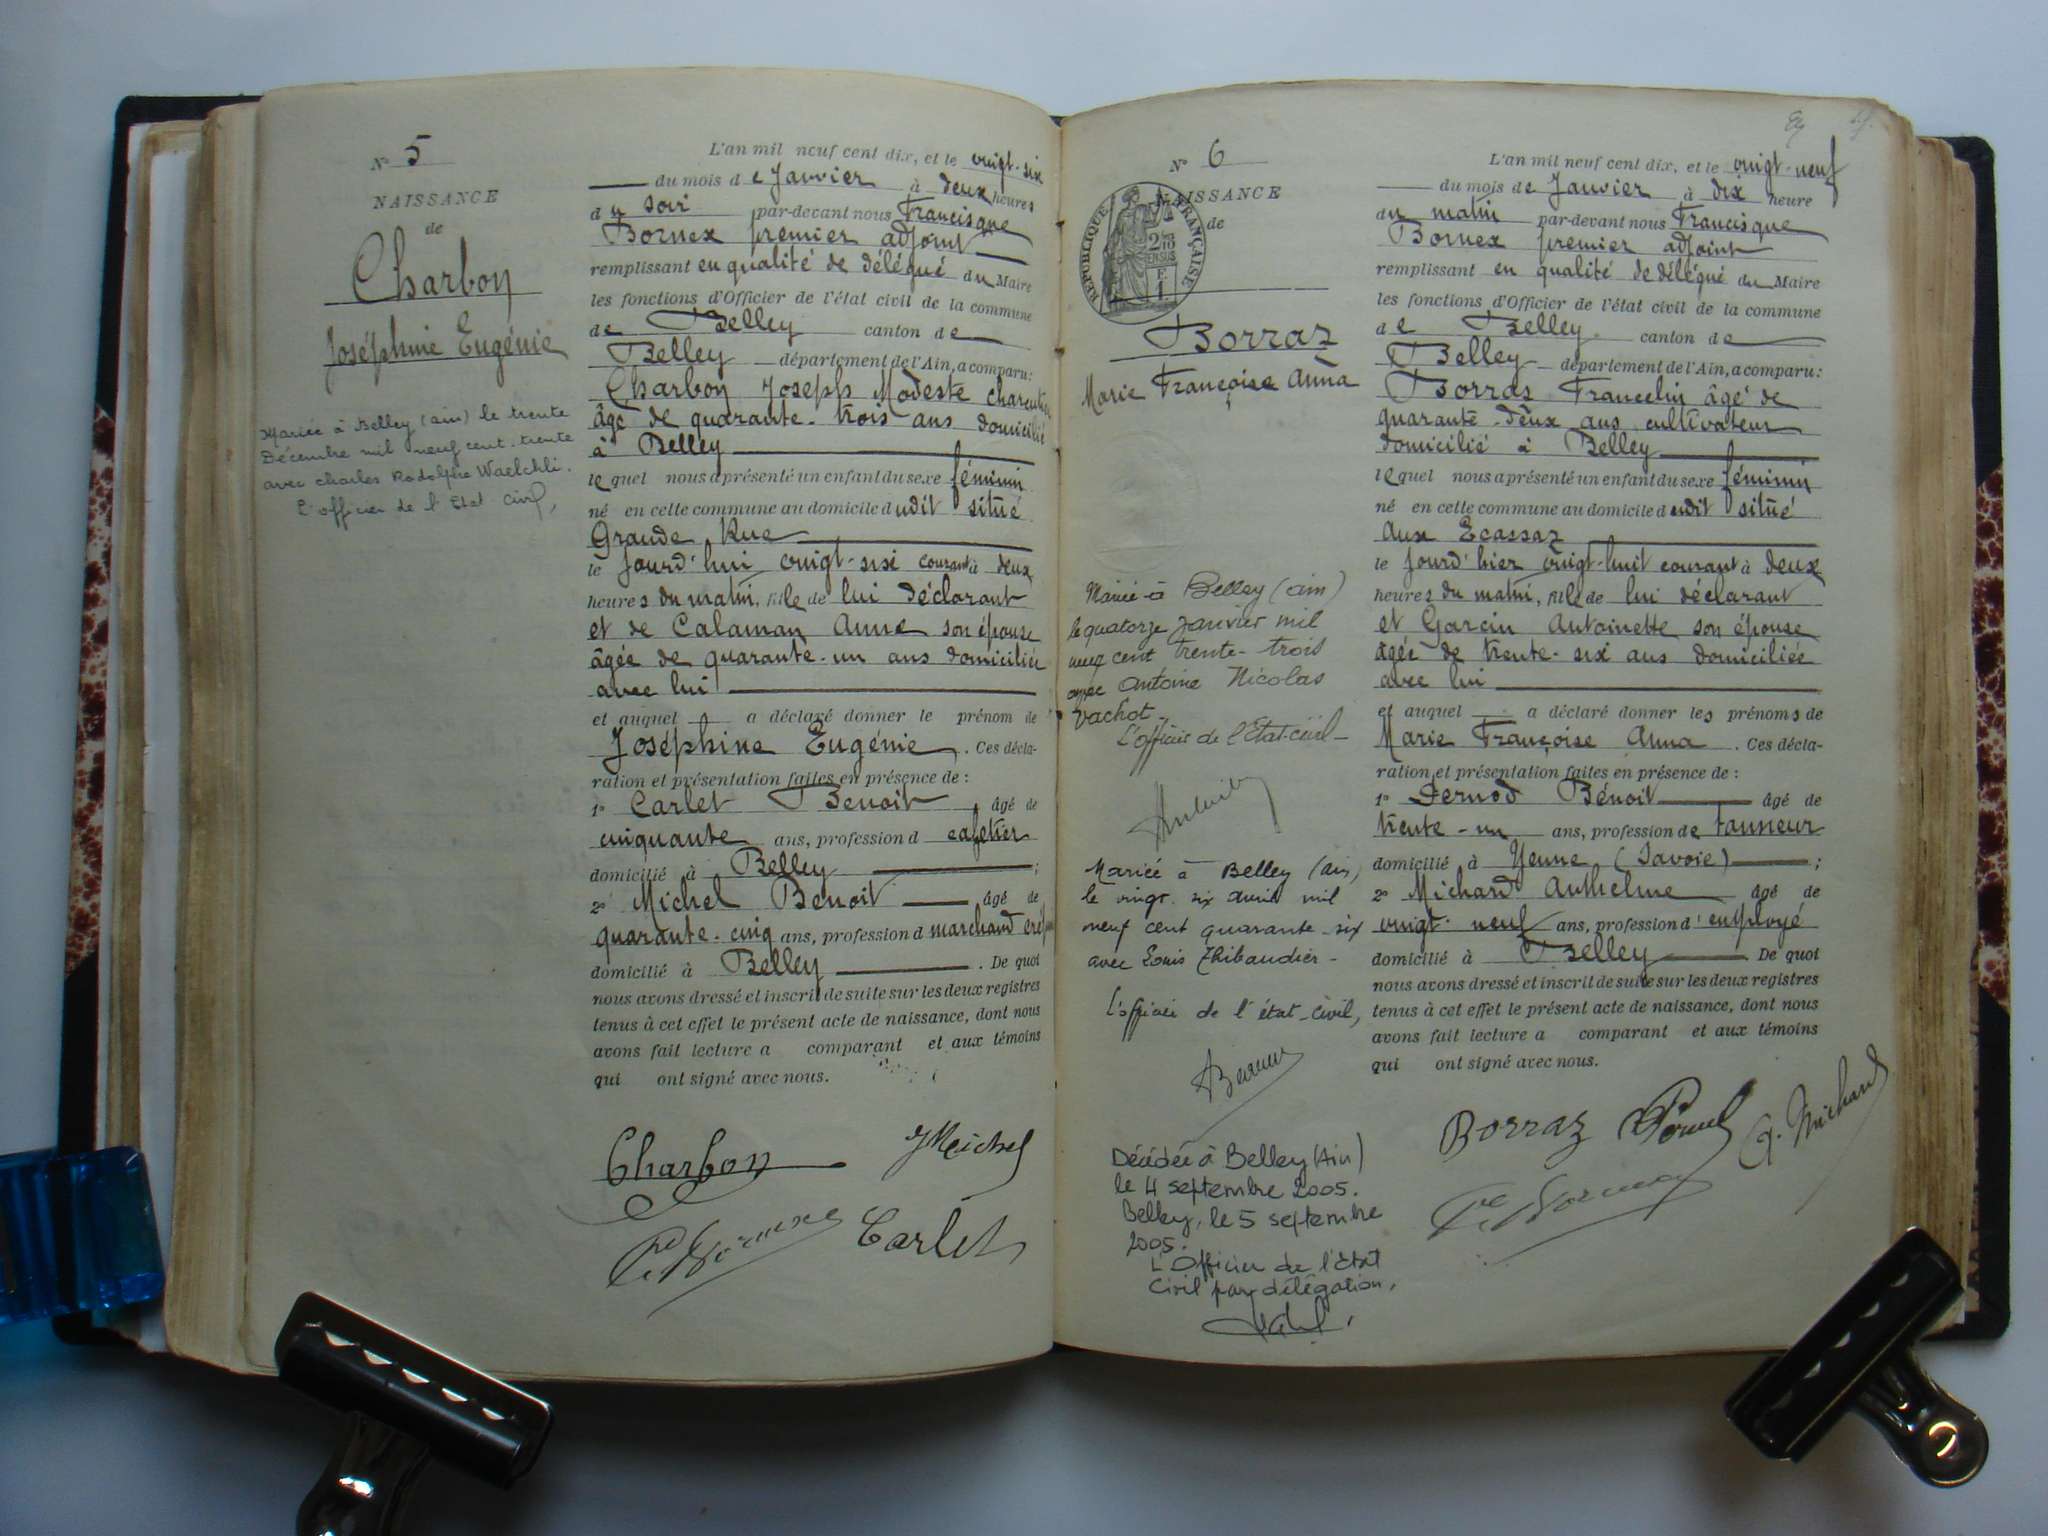 N° 5
NAISSANCE
de
Charbon
Joséphine Eugénie
Mariée à Belley (ain) le trente
Décembre mil neuf cent trente
avec Charles Rodolphe Waelchli.
L'officier de l'Etat Civil,
L'an mil neuf cent dix, et le vingt-six
du mois de Janvier à deux heures
du soir par-devant nous Francisque
Bornex premier adjoint
remplissant en qualité de délégué du Maire
les fonctions d'Officier de l'état civil de la commune
de Belley canton de
Belley département de l'Ain, a comparu:
Charbon Joseph Modeste
âgé de quarante-trois ans domicilié
à Belley
lequel nous a présenté un enfant du sexe féminin
né en cette commune au domicile dudit situé
Grande Rue
le jourd'hui vingt-six courant à deux
heures du matin, fille de lui déclarant
et de Calaman Anne son épouse
âgée de quarante-un ans domiciliée
avec lui
et auquel a déclaré donner le prénom de
Joséphine Eugénie. Ces décla-
ration et présentation faites en présence de :
1° Carlet Benoit, âgé de
cinquante ans, profession d cafetier
domicilié à Belley ;
2° Michel Benoit âgé de
quarante-cinq ans, profession d marchand
domicilié à Belley. De quoi
nous avons dressé et inscrit de suite sur les deux registres
tenus à cet effet le présent acte de naissance, dont nous
avons fait lecture a comparant et aux témoins
qui ont signé avec nous.
Charbon Michel
Bornex Carlet
N° 6
NAISSANCE
de
RÉPUBLIQUE FRANÇAISE
Borraz
Marie Françoise Anna
Mariée à Belley (ain)
le quatorze Janvier mil
neuf cent trente-trois
avec Antoine Nicolas
Vachot.
L'officier de l'Etat-civil
Mariée à Belley (ain)
le vingt six avril mil
neuf cent quarante-six
avec Louis Thibaudier
L'officier de l'état-civil,
Décédée à Belley (Ain)
le 4 septembre 2005.
Belley, le 5 septembre
2005.
L'Officier de l'Etat
Civil par délégation,
L'an mil neuf cent dix, et le vingt-neuf
du mois de Janvier à dix heure
du matin par-devant nous Francisque
Bornex premier adjoint
remplissant en qualité de délégué du Maire
les fonctions d'Officier de l'état civil de la commune
de Belley canton de
Belley département de l'Ain, a comparu:
Borras Francelin âgé de
quarante-deux ans cultivateur
domicilié à Belley
lequel nous a présenté un enfant du sexe féminin
né en cette commune au domicile dudit situé
aux Ecassaz
le jourd'hier vingt-huit courant à deux
heures du matin, fille de lui déclarant
et Garcin Antoinette son épouse
âgée de trente-six ans domiciliée
avec lui
et auquel a déclaré donner les prénoms de
Marie Françoise Anna. Ces décla-
ration et présentation faites en présence de :
1° Bénoit âgé de
trente-un ans, profession de tanneur
domicilié à Yenne (Savoie) ;
2° Michard Anthelme âgé de
vingt-neuf ans, profession d'employé
domicilié à Belley De quoi
nous avons dressé et inscrit de suite sur les deux registres
tenus à cet effet le présent acte de naissance, dont nous
avons fait lecture a comparant et aux témoins
qui ont signé avec nous.
Borraz A. Michard
Bornex